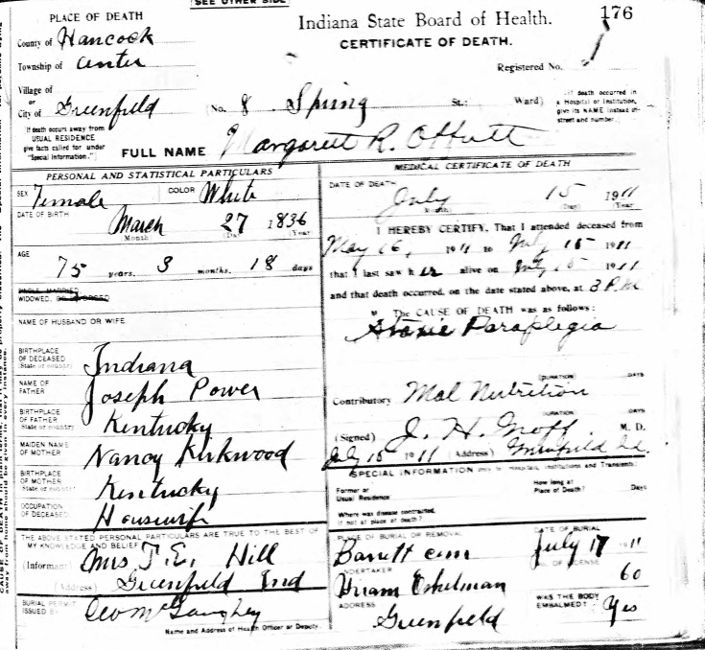 SEE OTHER SIDE
PLACE OF DEATH
Indiana State Board of Health. 176
County of Hancock
CERTIFICATE OF DEATH.
Township of Center
Registered No. 1
Village of
or
City of Greenfield No. 8 Spring St.; Ward)
If death occurred in a Hospital or Institution, give its NAME instead of street and number.
If death occurs away from USUAL RESIDENCE give facts called for under "Special Information."
FULL NAME Margaret R. Offutt
PERSONAL AND STATISTICAL PARTICULARS
SEX Female COLOR White
DATE OF BIRTH March 27 1836
Month Day Year
AGE
75 years, 3 months, 18 days
SINGLE, MARRIED
WIDOWED, OR DIVORCED
NAME OF HUSBAND OR WIFE
BIRTHPLACE OF DECEASED State or country Indiana
NAME OF FATHER Joseph Power
BIRTHPLACE OF FATHER State or country Kentucky
MAIDEN NAME OF MOTHER Nancy Kirkwood
BIRTHPLACE OF MOTHER State or country Kentucky
OCCUPATION OF DECEASED Housewife
THE ABOVE STATED PERSONAL PARTICULARS ARE TRUE TO THE BEST OF MY KNOWLEDGE AND BELIEF
(Informant) Mrs T. E. Hill
(Address) Greenfield Ind
BURIAL PERMIT ISSUED BY Geo McGaughey
Name and Address of Health Officer or Deputy
MEDICAL CERTIFICATE OF DEATH
DATE OF DEATH July 15 1911
Month (Day) (Year)
I HEREBY CERTIFY, That I attended deceased from
May 16, 1911 to July 15 1911
that I last saw her alive on July 15 1911
and that death occurred, on the date stated above, at 3 P.M.
The CAUSE OF DEATH was as follows:
Paraplegia
DURATION DAYS
Contributory Mal Nutrition
DURATION DAYS
(Signed) J. H. M. D.
July 15 1911 (Address) Greenfield Ind.
SPECIAL INFORMATION only for Hospitals, Institutions and Transients
Former or Usual Residence
How long at Place of Death? Days
Where was disease contracted, if not at place of death?
PLACE OF BURIAL OR REMOVAL Barrett cem
DATE OF BURIAL July 17 1911
UNDERTAKER Hiram
LICENSE 60
ADDRESS Greenfield
WAS THE BODY EMBALMED? Yes